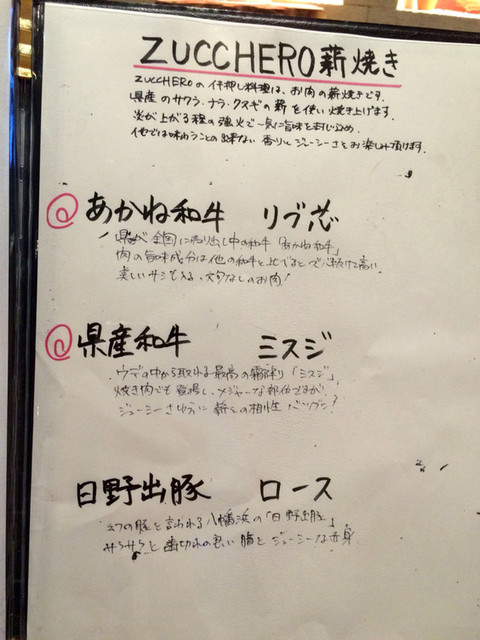 ZUCCHERO薪焼き
ZUCCHEROのイチ押し料理は、お肉の薪焼きです。
県産のサクラ、ナラ、クヌギの薪を使い焼き上げます。
炎が上がる程の強火で一気に旨味を封じ込め、
他では味わうことの出来ない香りとジューシーさをお楽しみ頂けます。
あかね和牛 リブ芯
県が全国に売り出し中の和牛「あかね和牛」
肉の旨味成分は他の和牛と比べると高い。
美しいサシもある、文句なしのお肉!
県産和牛 ミスジ
ウデの中から取れる最高の霜降り「ミスジ」
焼き肉でも登場し、メジャーな部位ですが、
ジューシーさゆえに薪との相性バツグン!
日野出豚 ロース
と言われる八幡浜の「日野出豚」
サラサラと歯切れの良い脂とジューシーな赤身